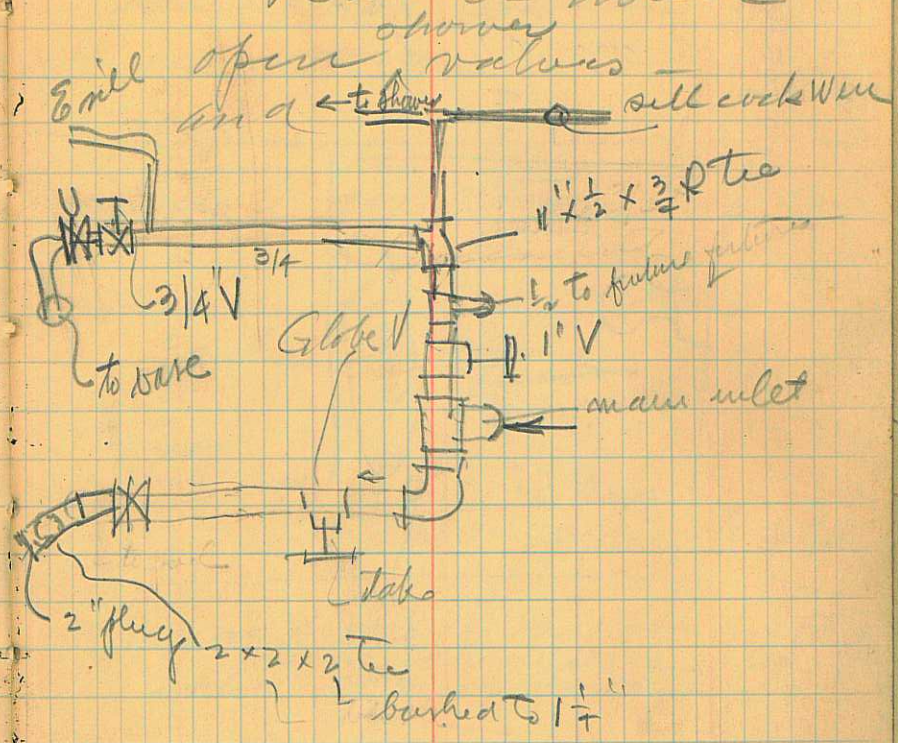 shower
open valves
and ← to shower
sill cock W
1" x 1/2 x 3/4 R tee
3/4
3/4" V
1/2 to future fixtures
Globe V
1" V
to base
main inlet
2" plug
2 x 2 x 2 Tee
bushed to 1 1/4"